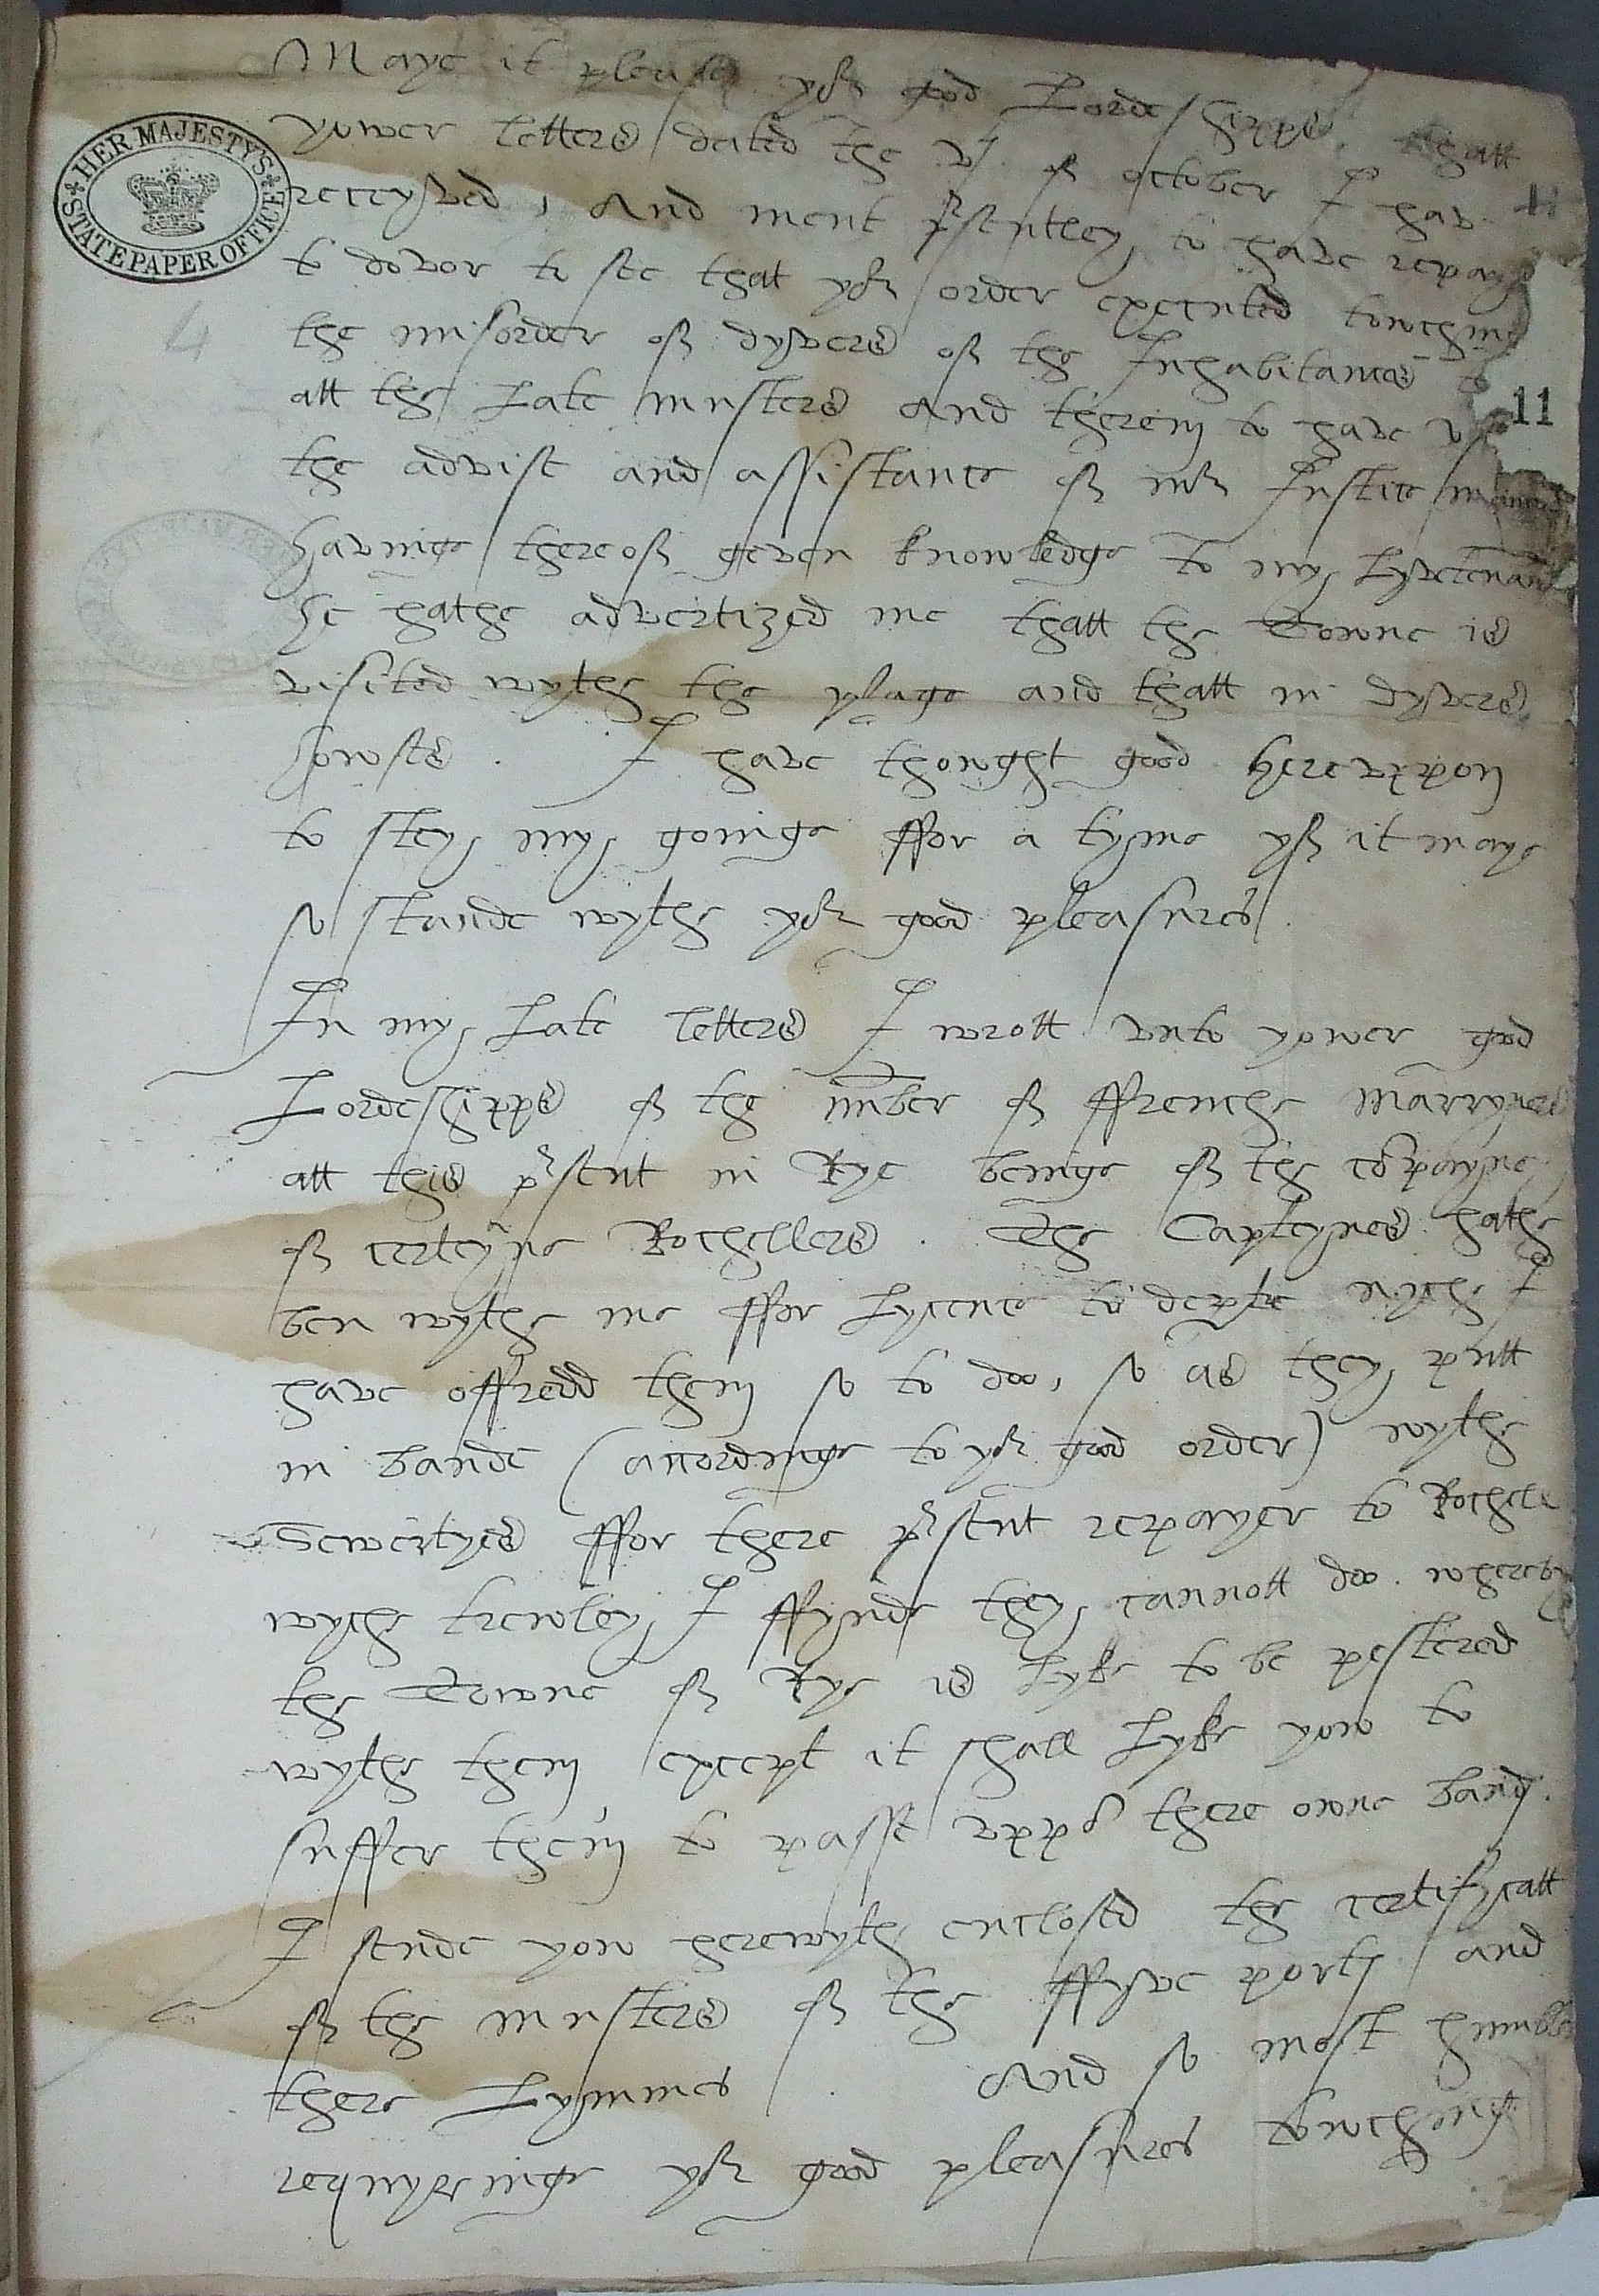 Maye it please yor good Lordeshippes thatt
yower letters dated the vj of october I hav
receyved, And ment prsentley to have repay
to dovor to see that yor order executed towching
the misorder of dyvers of the Inhabitances
att the Late musters And therein to have
the advise and assistance of mr Justice
Havinge thereof geven knowledge to my Lyvetenant
he hathe advertized me thatt the Towne is
visited wythe the plage and thatt in dyvers
howses. I have thowght good hereuppon
to stey my goinge ffor a tyme yf it maye
so stande wythe yor good pleasures.
In my Late letters I wrott unto yower good
Lordeshippes of the nu̅ber of ffrenche marryners
att this prsent in Rye beinge of the co̅panyne
of certeyne Rochellers. The Capteynes hathe
ben wythe me ffor Lycence to depte wiche I
have offredd them so to doo, so as they putt
in bande (accordinge to yor good order) wythe
Sewertyes ffor there prsent repayer to Rochell
wyche trewley I ffynde they cannott doo. whereby
the Towne of Rye is Lyke to be pestered
wythe them except it shall Lyke yow to
suffer them to passe uppo̅ there owne band.
I sende yow herewyth enclosed the certifycatt
of the musters of the ffyve ports and
there Lymmes. And so most humbly
requyringe yor good pleasures towching
HER MAJESTY'S
STATE PAPER OFFICE
4
11